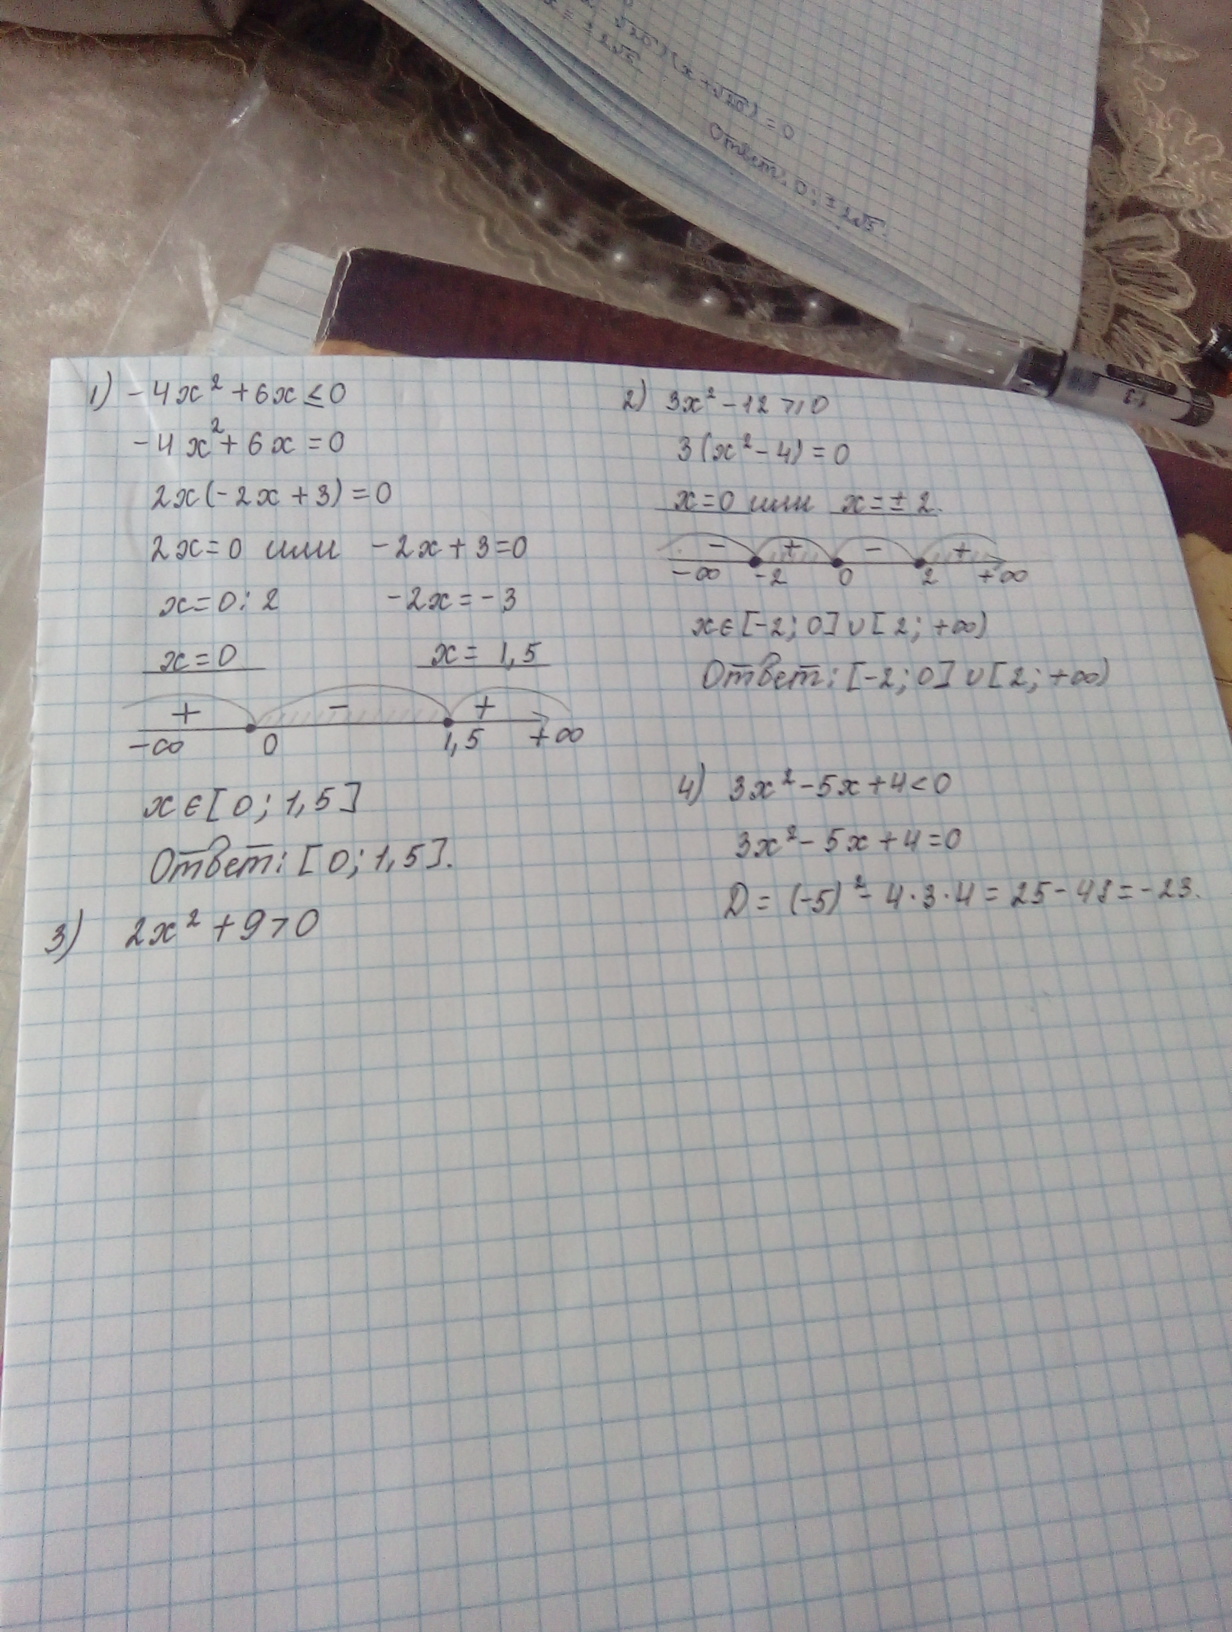 = ± 2√5
(x + √20) = 0
Ответ: 0; ± 2√5
1) -4x² + 6x ≤ 0
-4x² + 6x = 0
2x(-2x + 3) = 0
2x = 0 или -2x + 3 = 0
x = 0 : 2 -2x = -3
x = 0 x = 1,5
+ - +
-∞ 0 1,5 +∞
x ∈ [0; 1,5]
Ответ: [0; 1,5].
2) 3x² - 12 ⩾ 0
3(x² - 4) = 0
x = 0 или x = ± 2.
- + - +
-∞ -2 0 2 +∞
x ∈ [-2; 0] ∪ [2; +∞)
Ответ: [-2; 0] ∪ [2; +∞)
3) 2x² + 9 > 0
4) 3x² - 5x + 4 < 0
3x² - 5x + 4 = 0
D = (-5)² - 4 · 3 · 4 = 25 - 48 = -23.